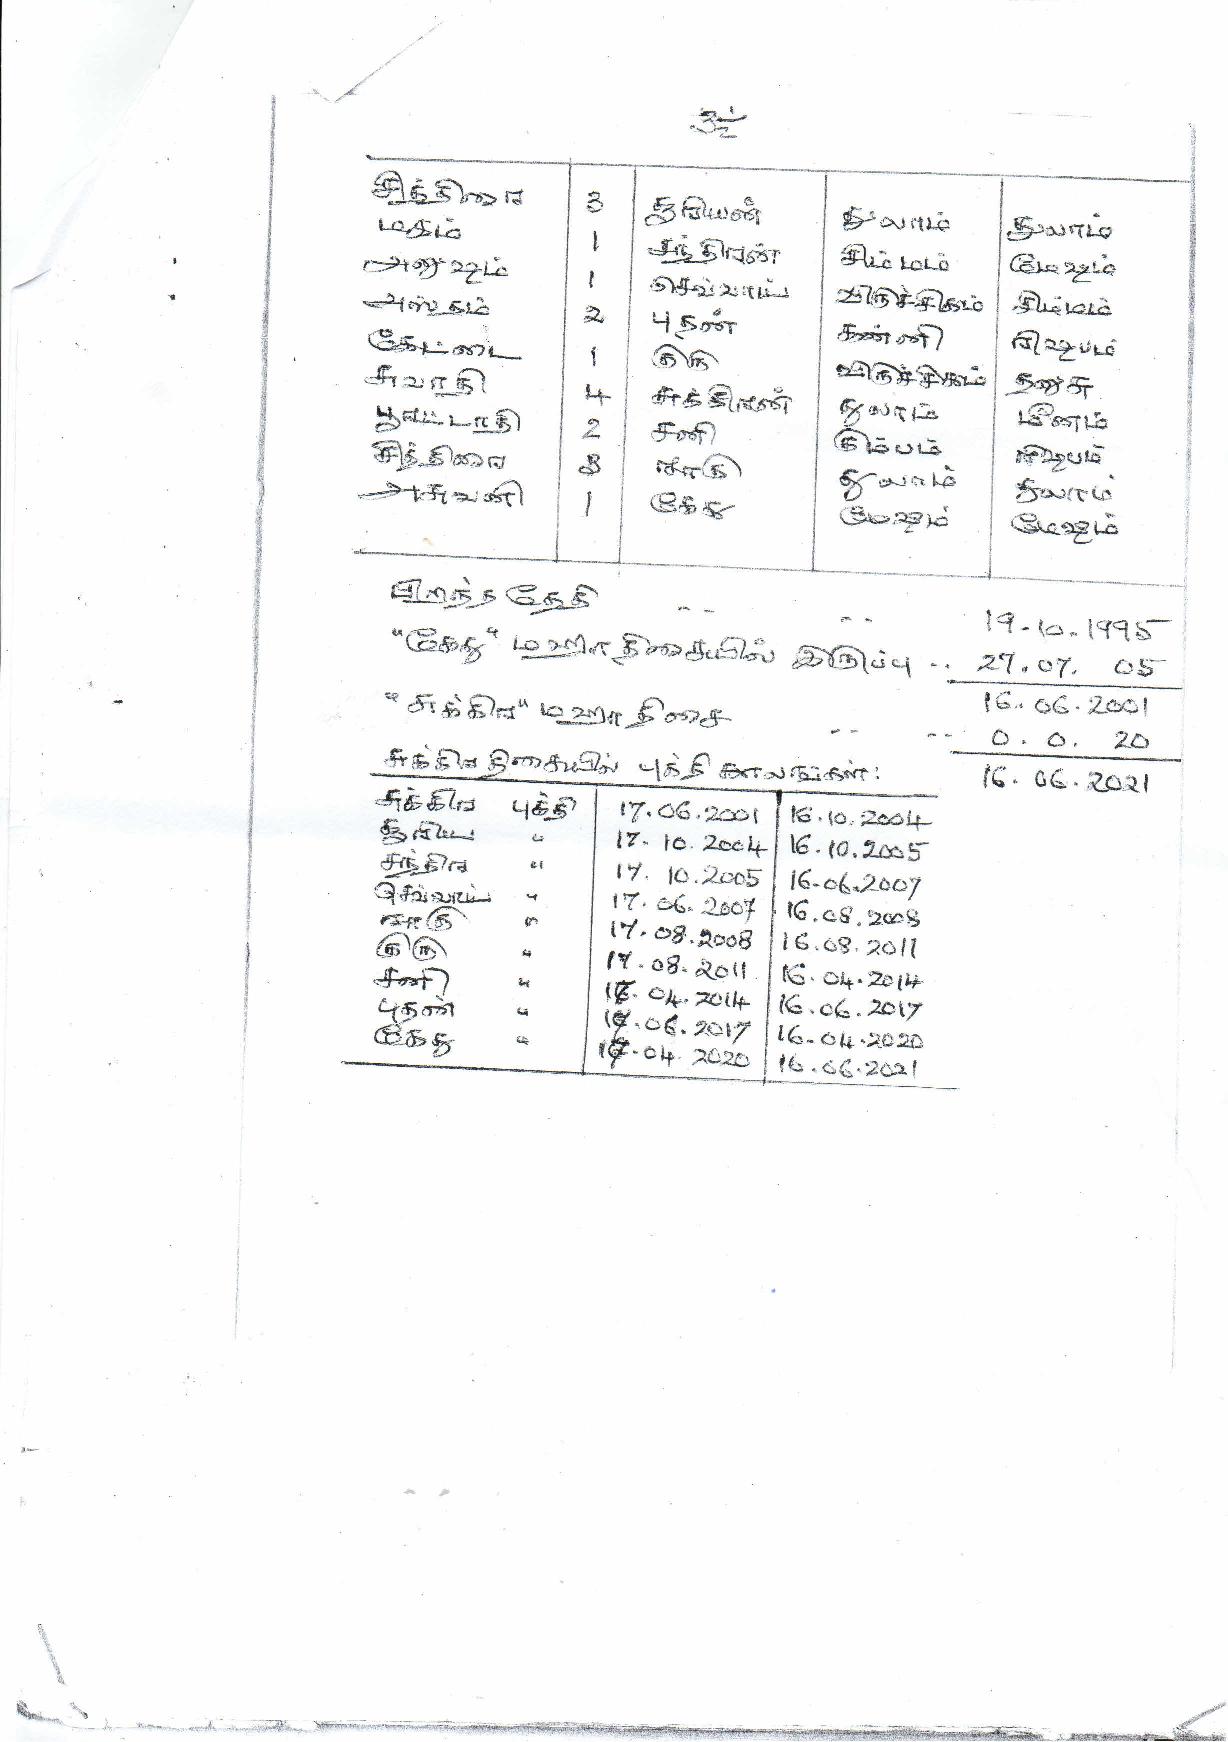 சித்திரை 3 சூரியன் துலாம் துலாம்
மகம் 1 சந்திரன் சிம்மம் மேஷம்
அனுஷம் 1 செவ்வாய் விருச்சிகம் சிம்மம்
அஸ்தம் 2 புதன் கன்னி ரிஷபம்
கேட்டை 1 குரு விருச்சிகம் தனுசு
சுவாதி 4 சுக்கிரன் துலாம் மீனம்
பூரட்டாதி 2 சனி கும்பம் ரிஷபம்
சித்திரை 3 ராகு துலாம் துலாம்
அசுவனி 1 கேது மேஷம் மேஷம்
பிறந்த தேதி -- -- 19.10.1995
"கேது" மஹா திசையில் இருப்பு -- 27.07. 05
"சுக்கிர" மஹா திசை 16.06.2001
-- -- 0. 0. 20
சுக்கிர திசையில் புக்தி காலங்கள்: 16.06.2021
சுக்கிர புக்தி 17.06.2001 16.10.2004
சூரிய " 17.10.2004 16.10.2005
சந்திர " 17.10.2005 16.06.2007
செவ்வாய் " 17.06.2007 16.08.2008
ராகு " 17.08.2008 16.08.2011
குரு " 17.08.2011 16.04.2014
சனி " 17.04.2014 16.06.2017
புதன் " 17.06.2017 16.04.2020
கேது " 17.04.2020 16.06.2021